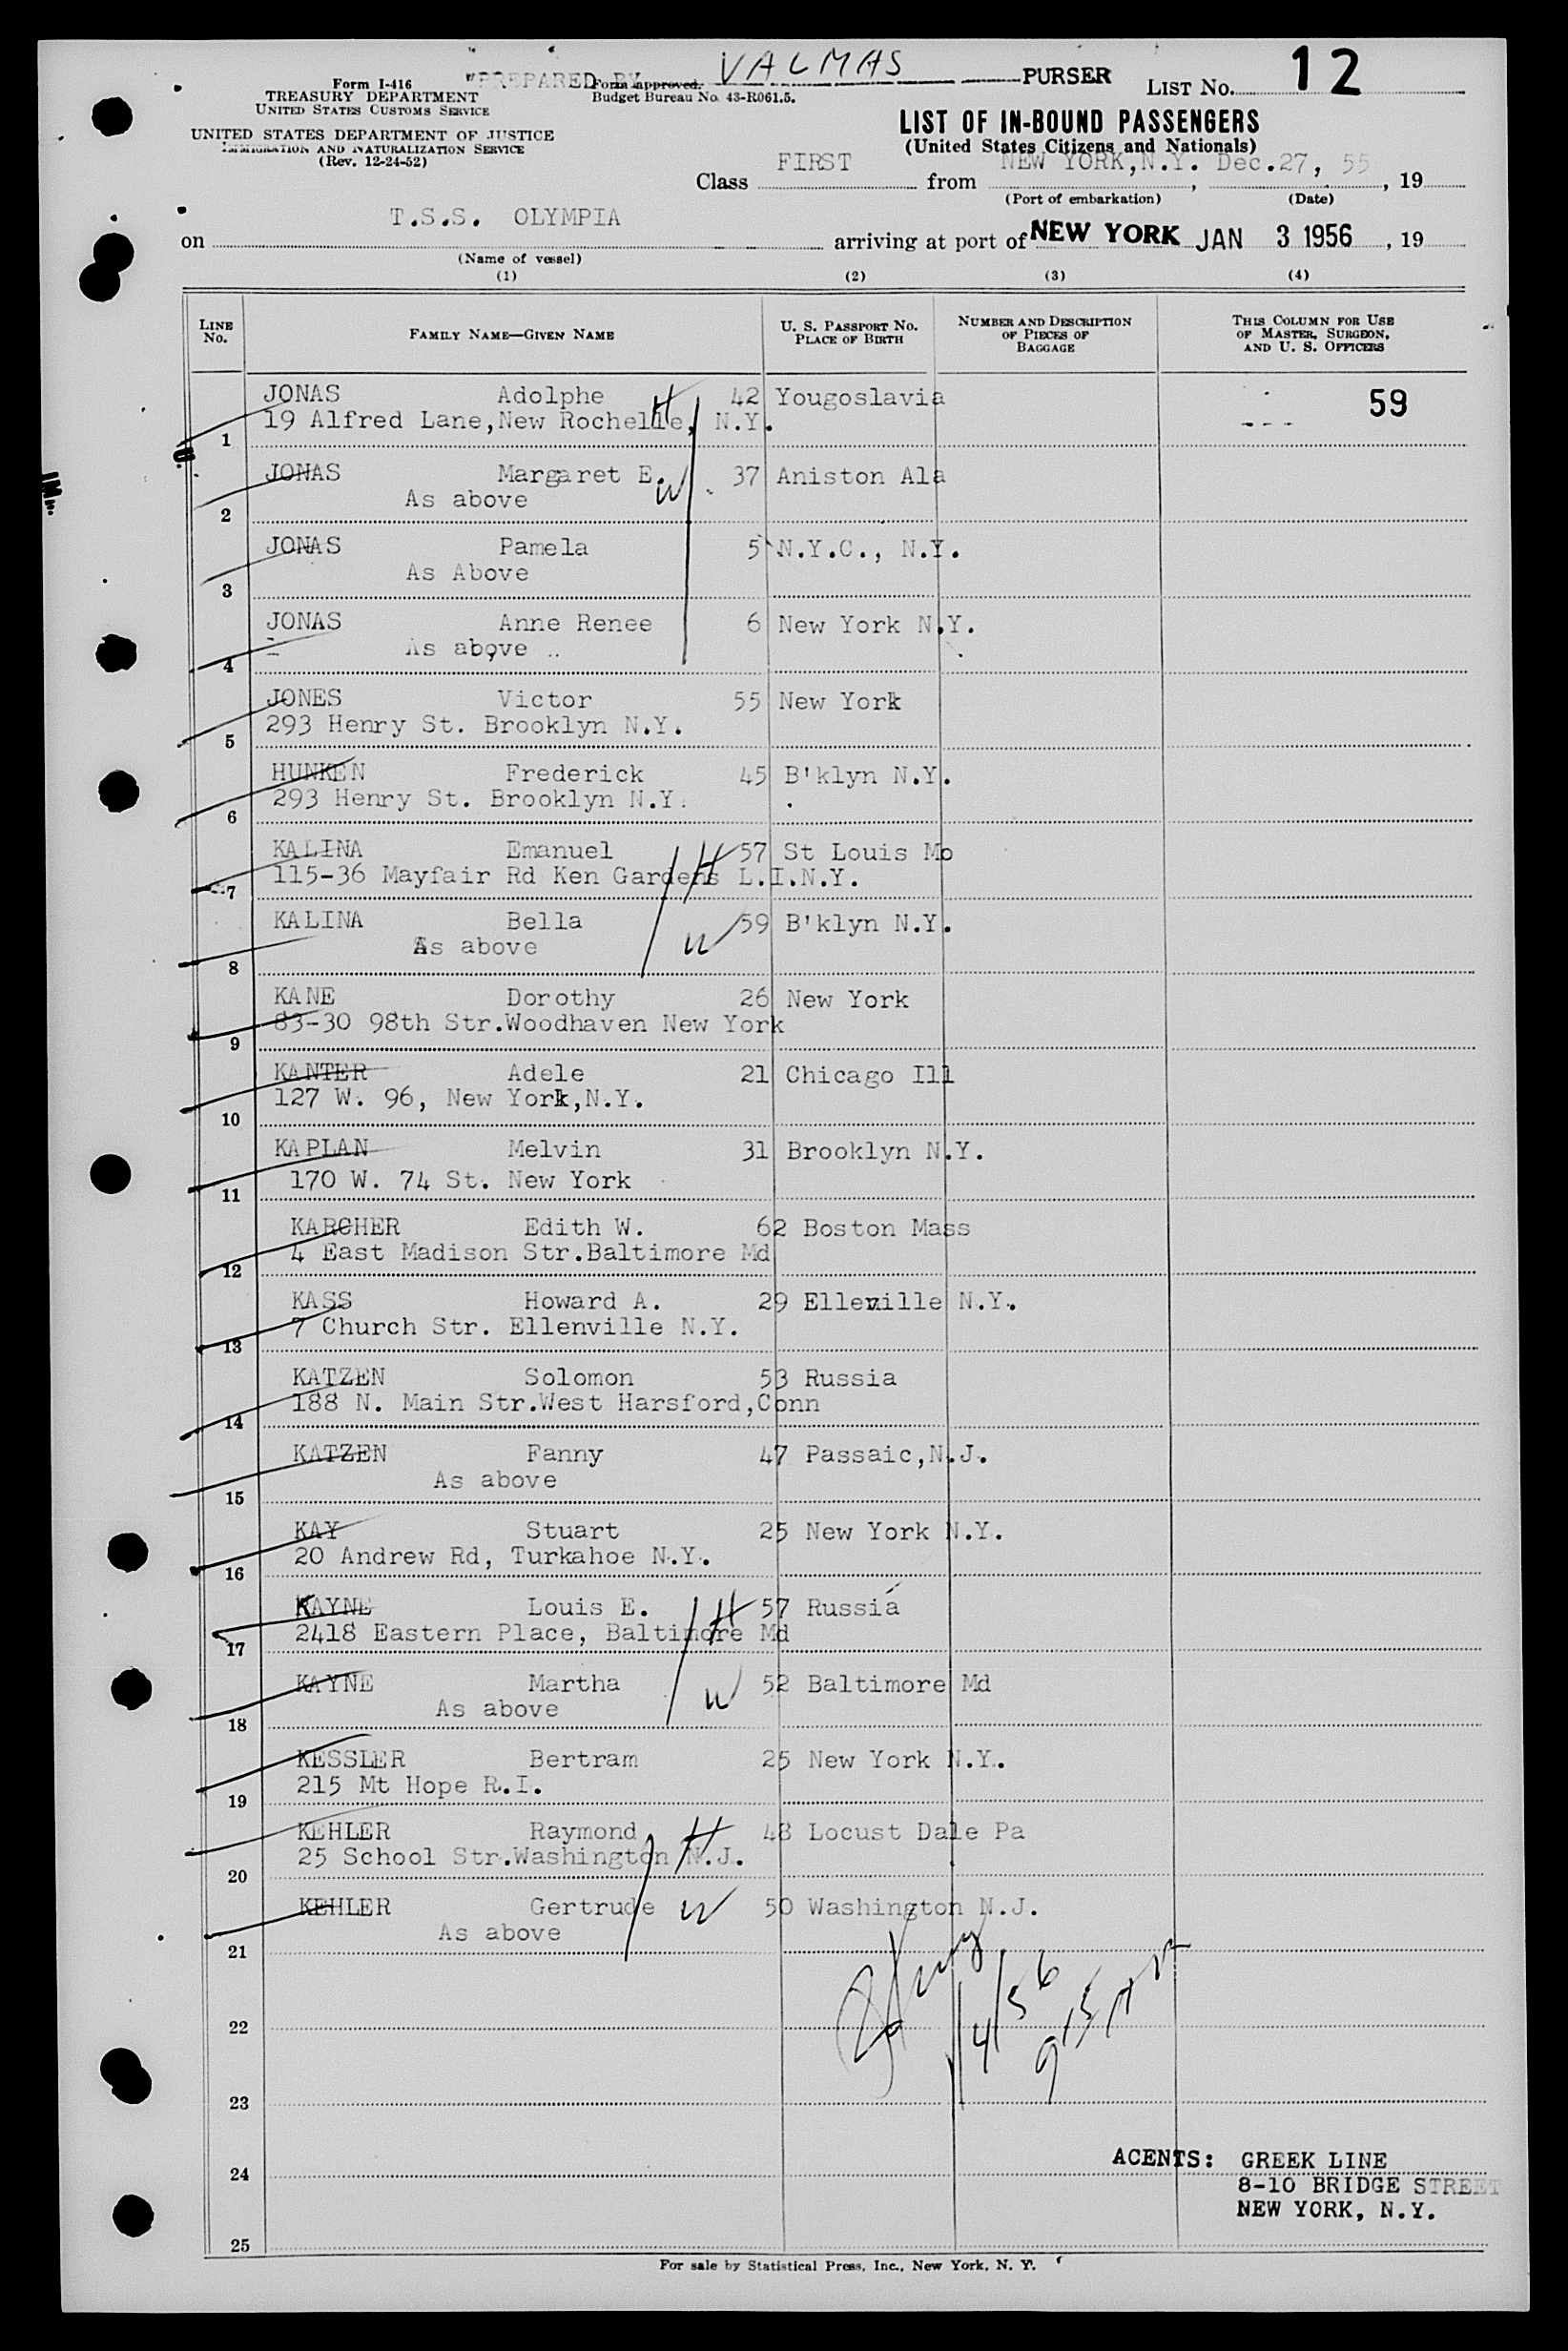 "PREPARED BY VALMAS PURSER
Form I-416
TREASURY DEPARTMENT
UNITED STATES CUSTOMS SERVICE
Form approved.
Budget Bureau No. 43-R061.5.
LIST No. 12
UNITED STATES DEPARTMENT OF JUSTICE
IMMIGRATION AND NATURALIZATION SERVICE
(Rev. 12-24-52)
LIST OF IN-BOUND PASSENGERS
(United States Citizens and Nationals)
Class FIRST from NEW YORK,N.Y. Dec.27, 55, 19
(Port of embarkation) (Date)
on T.S.S. OLYMPIA arriving at port of NEW YORK JAN 3 1956, 19
(Name of vessel)
(1) (2) (3) (4)
LINE No. FAMILY NAME—GIVEN NAME U. S. PASSPORT No. PLACE OF BIRTH NUMBER AND DESCRIPTION OF PIECES OF BAGGAGE THIS COLUMN FOR USE OF MASTER, SURGEON, AND U. S. OFFICERS
JONAS Adolphe H 42 Yougoslavia 59
1 19 Alfred Lane,New Rochelle, N.Y.
JONAS Margaret E. W 37 Aniston Ala
2 As above
JONAS Pamela 5 N.Y.C., N.Y.
3 As Above
JONAS Anne Renee 6 New York N.Y.
4 As above
JONES Victor 55 New York
5 293 Henry St. Brooklyn N.Y.
HUNKEN Frederick 45 B'klyn N.Y.
6 293 Henry St. Brooklyn N.Y.
KALINA Emanuel H 57 St Louis Mo
7 115-36 Mayfair Rd Ken Gardens L.I.N.Y.
KALINA Bella W 59 B'klyn N.Y.
8 As above
KANE Dorothy 26 New York
9 83-30 98th Str.Woodhaven New York
KANTER Adele 21 Chicago Ill
10 127 W. 96, New York,N.Y.
KAPLAN Melvin 31 Brooklyn N.Y.
11 170 W. 74 St. New York
KARCHER Edith W. 62 Boston Mass
12 4 East Madison Str.Baltimore Md
KASS Howard A. 29 Ellenville N.Y.
13 7 Church Str. Ellenville N.Y.
KATZEN Solomon 53 Russia
14 188 N. Main Str.West Harsford,Conn
KATZEN Fanny 47 Passaic,N.J.
15 As above
KAY Stuart 25 New York N.Y.
16 20 Andrew Rd, Turkahoe N.Y.
KAYNE Louis E. H 57 Russia
17 2418 Eastern Place, Baltimore Md
KAYNE Martha W 52 Baltimore Md
18 As above
KESSLER Bertram 25 New York N.Y.
19 215 Mt Hope R.I.
KEHLER Raymond H 48 Locust Dale Pa
20 25 School Str.Washington N.J.
KEHLER Gertrude W 50 Washington N.J.
21 As above
1/4/56
22 915 AM
23
24
25
AGENTS: GREEK LINE
8-10 BRIDGE STREET
NEW YORK, N.Y.
For sale by Statistical Press, Inc., New York, N. Y.